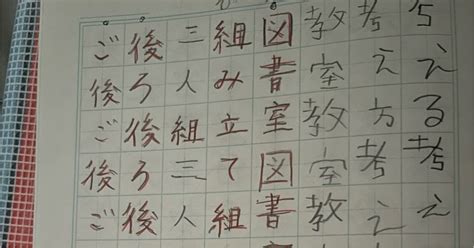 考える考え
考え方考え
教室教室教
図書室図書
組み立て組
三人組三人
後ろ後ろ後
ご後ご後ご